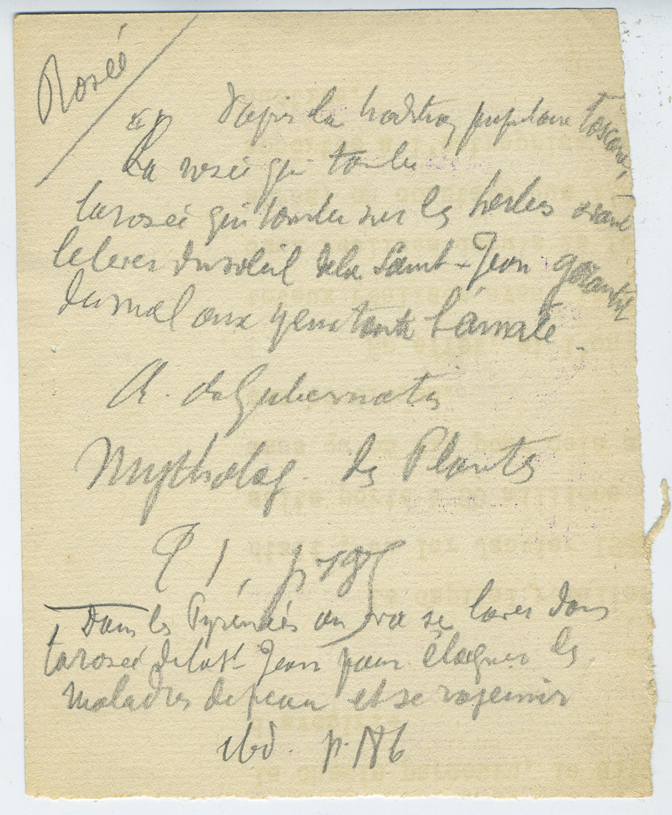 Rosée
D'après la tradition populaire Toscane,
La rosée qui tombe
la rosée qui tombe sur les herbes avant
le lever du soleil de la Saint-Jean garantit
du mal aux yeux toute l'année.
A. de Gubernatis
Mytholog. des Plantes
T 1, p 185
Dans les Pyrénées on va se laver dans
la rosée de la St Jean pour éloigner les
maladies de peau et se rajeunir
ibd. p. 186